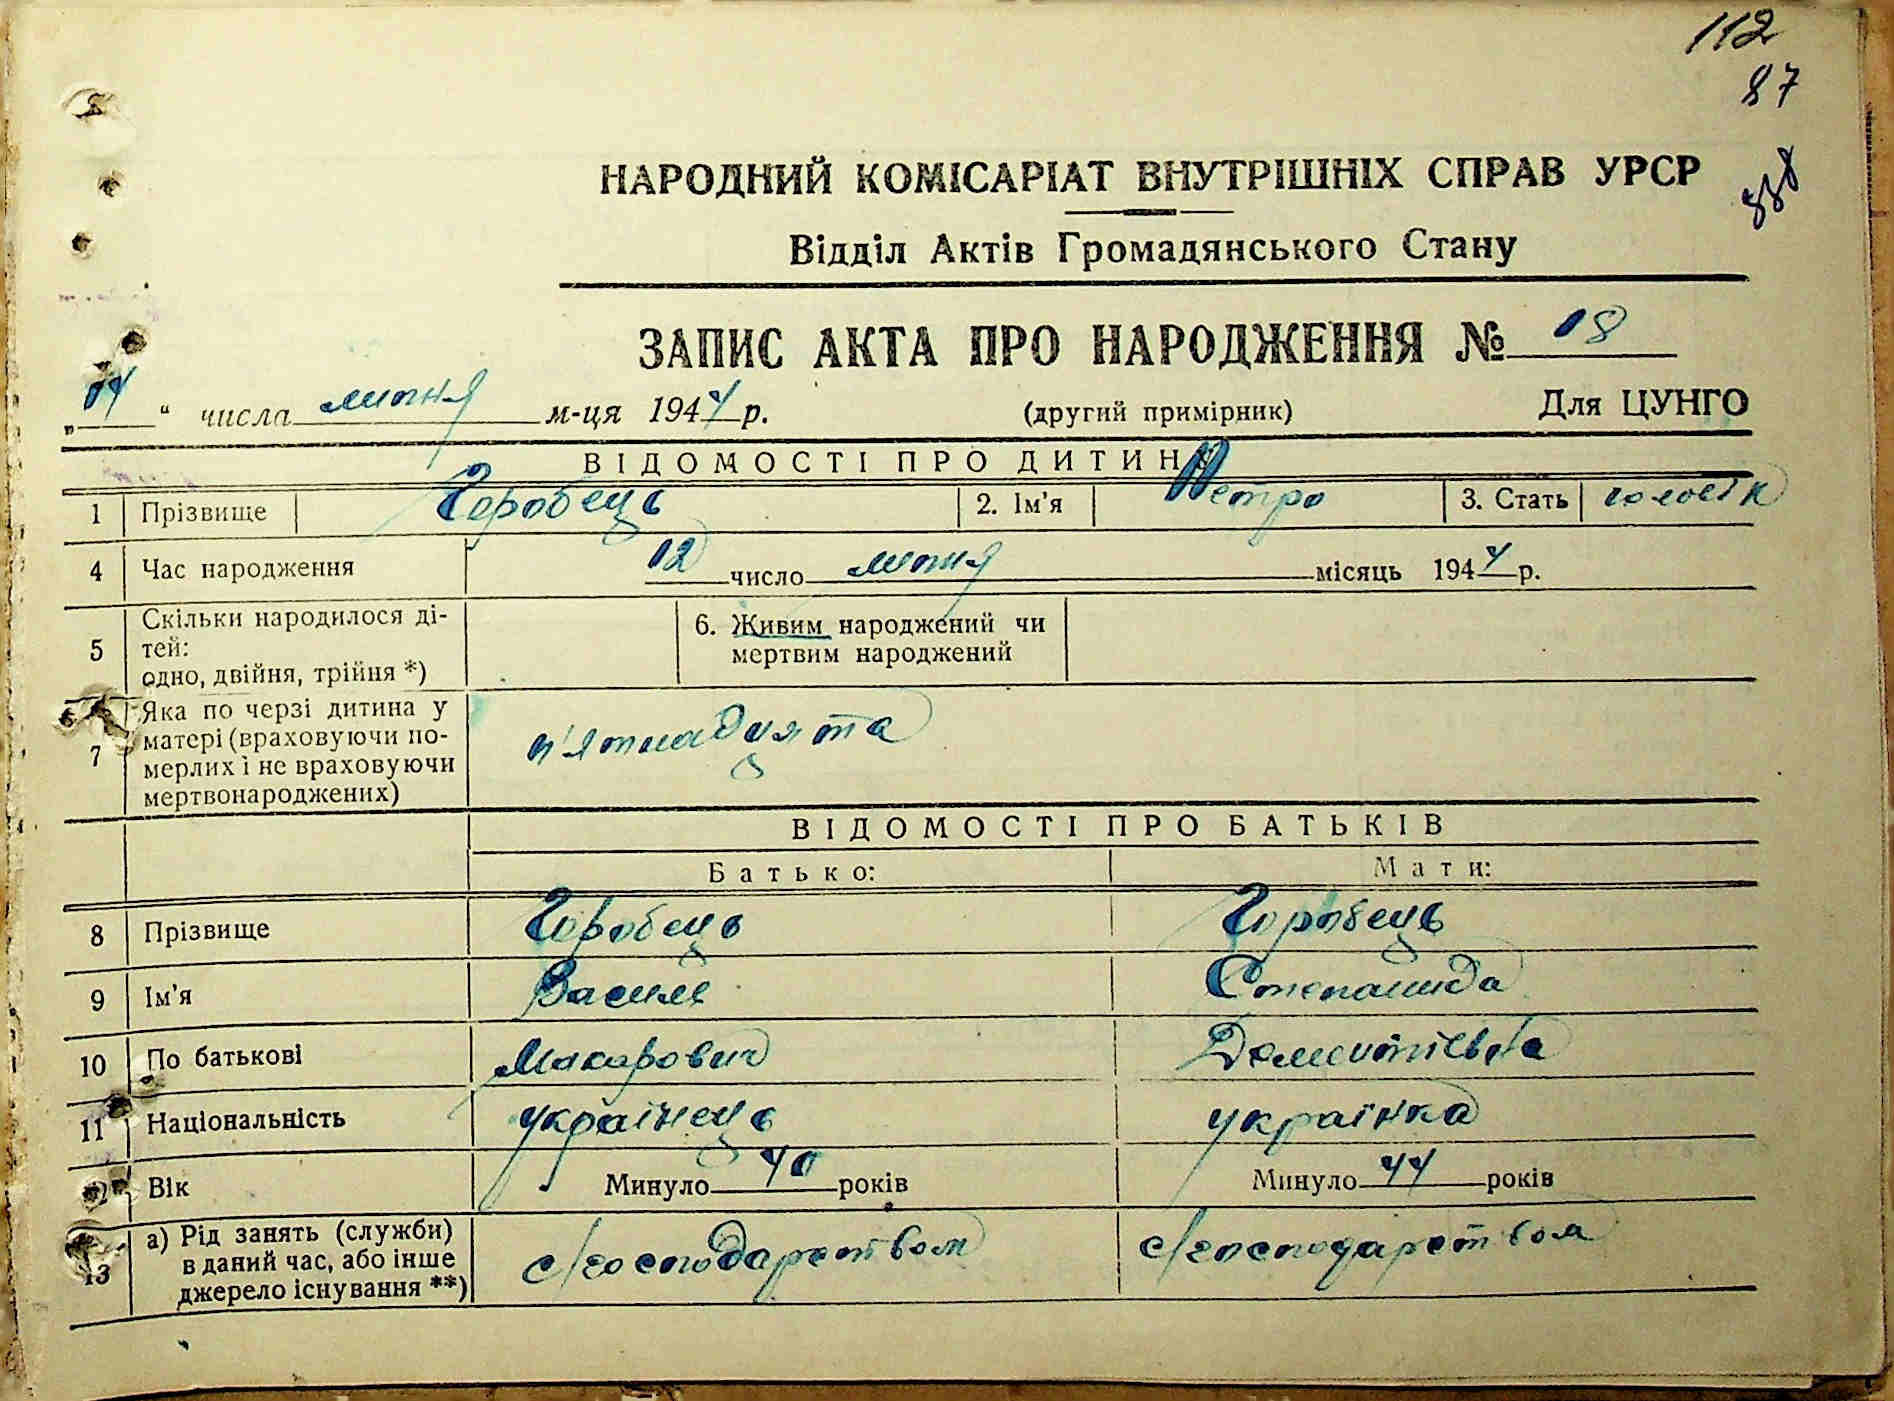 112
87
338
НАРОДНИЙ КОМІСАРІАТ ВНУТРІШНІХ СПРАВ УРСР
Відділ Актів Громадянського Стану
ЗАПИС АКТА ПРО НАРОДЖЕННЯ № 18
„14“ числа липня м-ця 1944 р. (другий примірник) Для ЦУНГО
ВІДОМОСТІ ПРО ДИТИНУ
1 Прізвище Горобець 2. Ім'я Петро 3. Стать чоловік
4 Час народження 12 число липня місяць 1944 р.
5 Скільки народилося ді-
тей:
одно, двійня, трійня *)
6. Живим народжений чи
мертвим народжений
7 Яка по черзі дитина у
матері (враховуючи по-
мерлих і не враховуючи
мертвонароджених)
п'ятнадцята
ВІДОМОСТІ ПРО БАТЬКІВ
Батько: Мати:
8 Прізвище Горобець Горобець
9 Ім'я Василь Степанида
10 По батькові Макарович Дементіївна
11 Національність українець українка
12 Вік Минуло 40 років Минуло 44 років
13 а) Рід занять (служби)
в даний час, або інше
джерело існування **)
с/господарством с/господарством